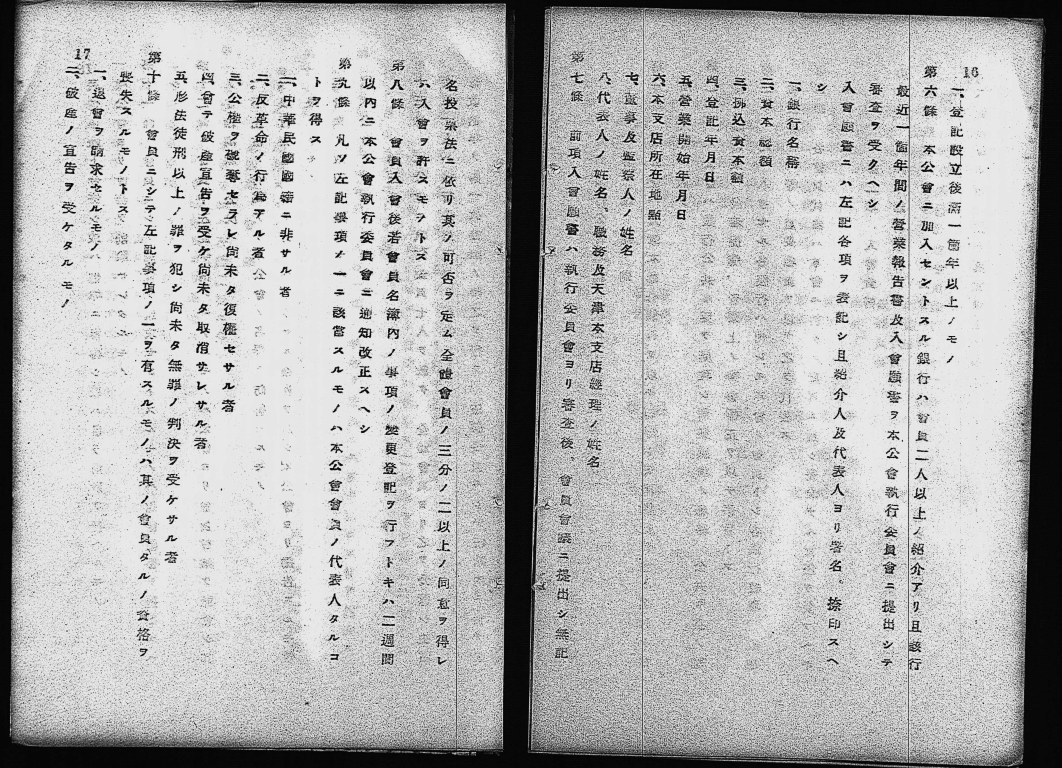 16
一、登記設立後滿一箇年以上ノモノ
第六條 本公會ニ加入セントスル銀行ハ會員二人以上ノ紹介アリ且該行
最近一箇年間ノ營業報告書及入會願書ヲ本公會執行委員會ニ提出シテ
審査ヲ受クヘシ
入會願書ニハ左記各項ヲ表記シ且紹介人及代表人ヨリ署名、捺印スヘ
シ
一、銀行名稱
二、資本總額
三、拂込資本額
四、登記年月日
五、營業開始年月日
六、本支店所在地點
七、董事及監察人ノ姓名
八、代表人ノ姓名、職務及天津本支店經理ノ姓名
第七條 前項入會願書ハ執行委員會ヨリ審査後、會員會議ニ提出シ無記
17
名投票法ニ依リ其ノ可否ヲ定ム全體會員ノ三分ノ二以上ノ同意ヲ得レ
ハ入會ヲ許スモノトス
第八條 會員入會後若會員名簿內ノ事項ノ變更登記ヲ行フトキハ二週間
以内ニ本公會執行委員會ニ通知改正スヘシ
第九條 凡ソ左記事項ノ一ニ該當スルモノハ本公會會員ノ代表人タルコ
トヲ得ス
一、中華民國國籍ニ非サル者
二、反革命ノ行爲アル者
三、公權ヲ褫奪セラレ尚未タ復權セサル者
四、曾テ破產宣告ヲ受ケ尚未タ取消サレサル者
五、刑法徒刑以上ノ罪ヲ犯シ尚未タ無罪ノ判決ヲ受ケサル者
第十條 會員ニシテ左記事項ノ一ヲ有スルモノハ其ノ會員タルノ資格ヲ
喪失スルモノトス
一、退會ヲ請求セルモノ
二、破產ノ宣告ヲ受ケタルモノ